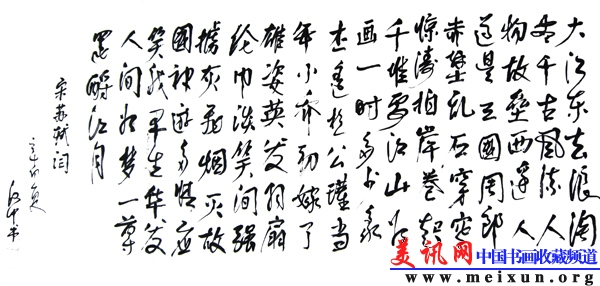 大江东去浪淘
尽千古風流人
物故壘西邊人
道是三國周郎
赤壁乱石穿空
惊涛拍岸卷起
千堆雪江山如
画一时多少豪
杰遥想公瑾当
年小乔初嫁了
雄姿英发羽扇
纶巾谈笑间强
虏灰飞烟灭故
國神游多情应
笑我早生华发
人间如梦一尊
還酹江月
宋苏轼词
美讯网 中国书画收藏频道
www.meixun.org